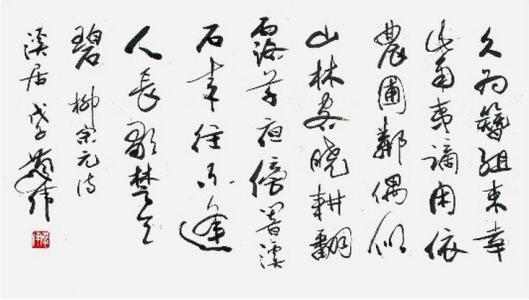 久为簪組束幸
此南夷謫闲依
農圃鄰偶似
山林客曉耕翻
露草夜傍響溪
石来往不逢
人長歌楚天
碧 柳宗元诗
溪居 戊子